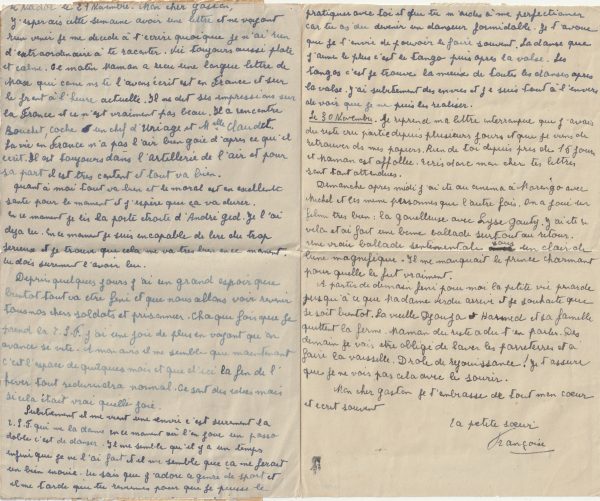 le 29 Novembre. Mon cher gaston,
J'espérais cette semaine avoir une lettre et ne voyant
rien venir je me decide à t'ecrire quoique je n'ai rien
d'extraordinaire a te raconter. Vie toujours aussi plate
et calme. Ce matin Maman a recu une longue lettre de
Max qui comme je te l'avais écrit est en France et sur
le front à l'heure actuelle. Il me dit ses impressions sur
la France et ce n'est vraiment pas beau. Il a rencontré
Bouchet, coche en chef d'Uriage et Melle Claudet.
La vie en France n'a pas l'air bien gaie d'après ce qu'il
ecrit. Il est toujours dans l'artillerie de l'air et pour
sa part il est très content et tout va bien.
Quant à moi tout va bien et le moral est en excellente
sante pour le moment et j'espère que ça va durer.
En ce moment je lis la porte etroite d'André Gide. Je l'ai
deja lu. En ce moment je suis incapable de lire du trop
serieux et je trouve que cela me va très bien en ce moment
tu dois surement l'avoir lu.
Depuis quelques jours j'ai un grand espoir que
bientot tout va être fini et que nous allons voir revenir
tous nos chers soldats et prisonniers. Chaque fois que je
prend la T.S.F. j'ai une joie de plus en voyant que on
avance si vite. A mon avis il me semble que maintenant
c'est l'espace de quelques mois et que d'ici la fin de l'
hiver tout redeviendra normal. Ce sont des rêves mais
si cela était vrai quelle joie.
Subitement il me vient une envie c'est surement la
T.S.F. qui me la donne en ce moment où l'on joue un paso
doble c'est de danser. Il me semble qu'il y a un temps
infini que je ne l'ai fait et il me semble que ça me ferait
un bien inouie. Tu sais que j'adore ce genre de sport et
il me tarde que tu reviennes pour que je puisse le
pratiquer avec toi et que tu m'aides à me perfectionner
car tu as du devenir un danseur formidable. Je t'avoue
que je t'envie de pouvoir le faire souvent. La danse que
j'aime le plus c'est le tango puis après la valse. Les
tangos c'est je trouve la mieux de toutes les danses après
la valse. J'ai subitement des envies et je suis tout à l'envers
de voir que je ne puis les realiser.
Le 30 Novembre. Je reprend ma lettre interrompue que j'avais
de votre cru partie depuis plusieurs jours et que je viens de
retrouver ds mes papiers. Rien de toi depuis près de 15 jours
et Maman est affollee. Ecris donc mon cher tes lettres
sont tout attendues.
Dimanche après midi j'ai été au cinema à Marengo avec
Michel et les memes personnes que l'autre fois. On a joué un
film très bien: la goualeuse avec Lysse Gauty. J'y ai été en
velo et ai fait une bonne ballade surtout au retour.
Une vraie ballade sentimentale sous un clair de
lune magnifique. Il me manquait le prince charmant
pour qu'elle le fut vraiment.
A partir de demain fini pour moi la petite vie peinarde
jusqu'à ce que Madame Ardu arrive et je souhaite que
ce soit bientot. La vieille Djouza et Hamed et sa famille
quittent la ferme. Maman du reste a du t'en parler. Des
demain je vais etre obligé de laver les parterres et à
faire la vaisselle. Drole de rejouissance! Je t'assure
que je ne vois pas cela avec le sourire.
Mon cher gaston je t'embrasse de tout mon cœur
et ecrit souvent
Ta petite sœur
Françoise